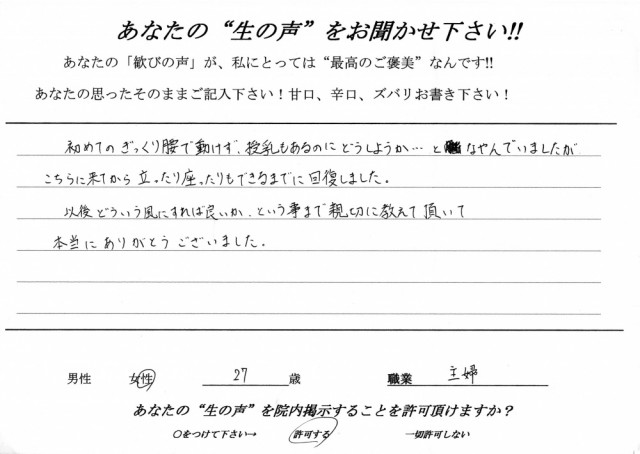 あなたの“生の声”をお聞かせ下さい!!
あなたの「歓びの声」が、私にとっては“最高のご褒美”なんです!!
あなたの思ったそのままご記入下さい！甘口、辛口、ズバリお書き下さい！
初めてのぎっくり腰で動けず、授乳もあるのにどうしようか…となやんでいましたが
こちらに来てから立ったり座ったりもできるまでに回復しました。
以後どういう風にすれば良いか、という事まで親切に教えて頂いて
本当にありがとうございました。
男性　女性　27　歳　職業　主婦
あなたの“生の声”を院内掲示することを許可頂けますか？
○をつけて下さい→　許可する　一切許可しない